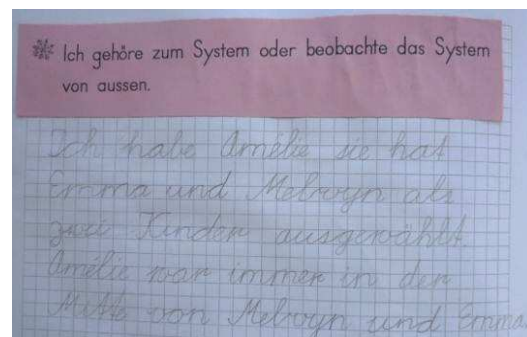 Ich gehöre zum System oder beobachte das System
von aussen.
Ich habe Amélie sie hat
Emma und Melvyn als
zwei Kinder ausgewählt.
Amélie war immer in der
Mitte von Melvyn und Emma.